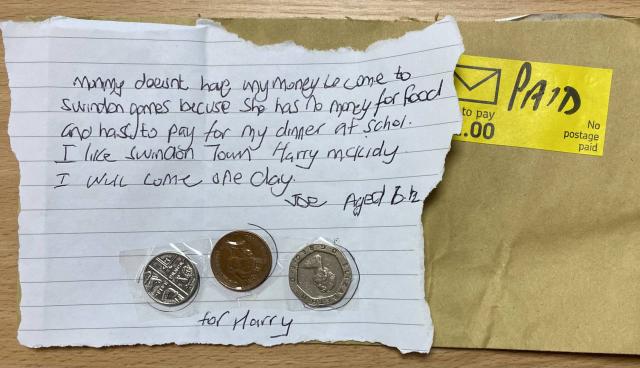 Mommy doesnt have any money to come to
Swindon games becuse She has no money for food
and hast to pay for my dinner at Schol.
I like Swindon Town Harry mckidy
I will come one day.
Joe Aged 6½
for Harry
PAID
to pay
.00
No
postage
paid